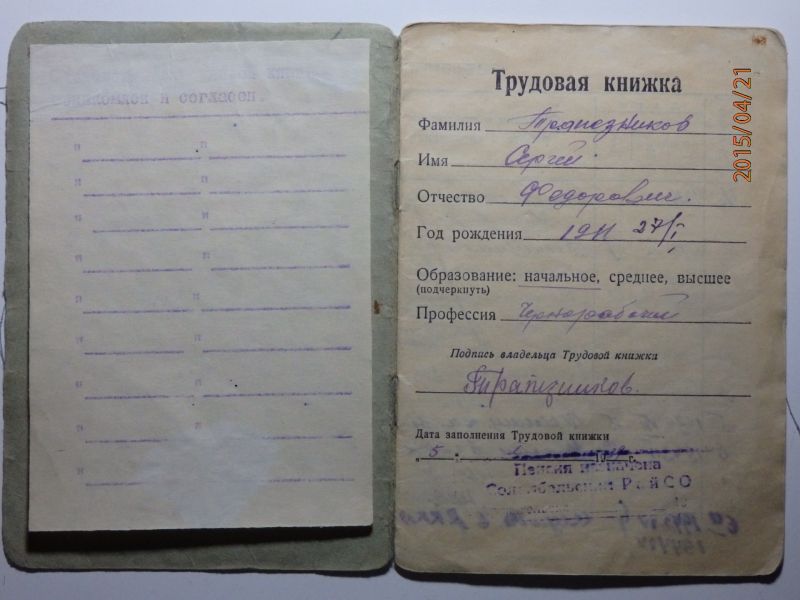 и согласен.
Трудовая книжка
Фамилия Трапезников
Имя Сергей
Отчество Федорович.
Год рождения 1911 27/I
Образование: начальное, среднее, высшее
(подчеркнуть)
Профессия Чернорабочий
Подпись владельца Трудовой книжки
Трапезников.
Дата заполнения Трудовой книжки
„5
19 г.
Пенсия назначена
Соломбальским РайСО
2015/04/21